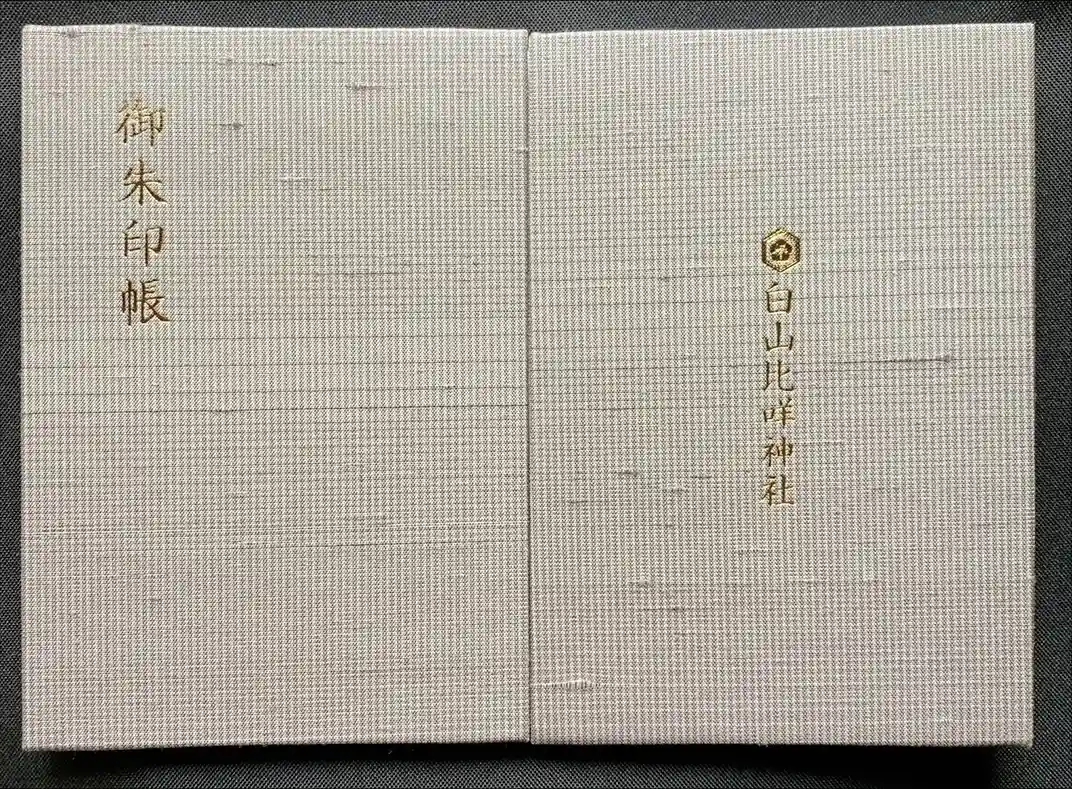 御朱印帳
白山比咩神社